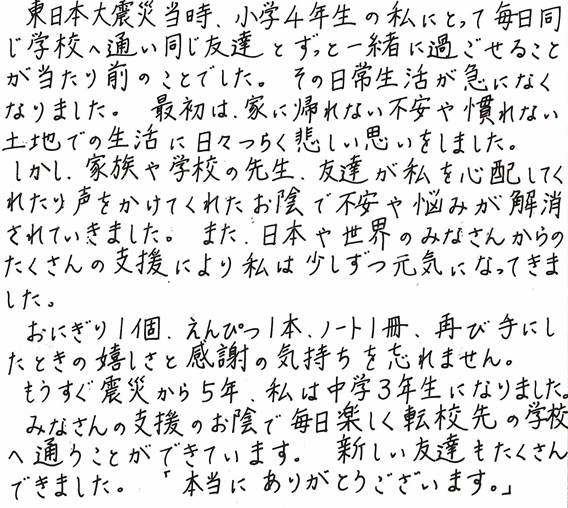 東日本大震災当時、小学4年生の私にとって毎日同
じ学校へ通い同じ友達とずっと一緒に過ごせること
が当たり前のことでした。その日常生活が急になく
なりました。最初は、家に帰れない不安や慣れない
土地での生活に日々つらく悲しい思いをしました。
しかし、家族や学校の先生、友達が私を心配してく
れたり声をかけてくれたお陰で不安や悩みが解消
されていきました。また、日本や世界のみなさんからの
たくさんの支援により私は少しずつ元気になってきま
した。
おにぎり1個、えんぴつ1本、ノート1冊、再び手にし
たときの嬉しさと感謝の気持ちを忘れません。
もうすぐ震災から5年、私は中学3年生になりました。
みなさんの支援のお陰で毎日楽しく転校先の学校
へ通うことができています。新しい友達もたくさん
できました。「本当にありがとうございます。」